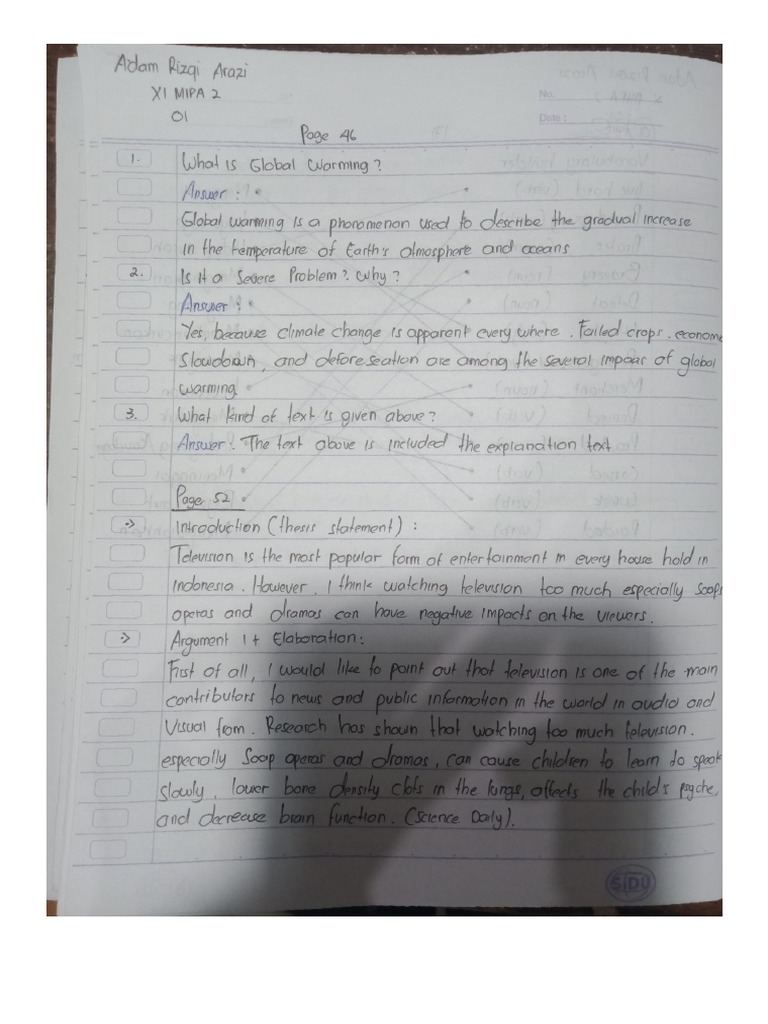 Adam Rizqi Arazi
XI MIPA 2
No.
01
Date :
Page 46
1. What is Global warming?
Answer :
Global warming is a phonomenon used to describe the gradual increase
in the temperature of Earth's atmosphere and oceans
2. Is it a Severe Problem? why?
Answer :
Yes, because climate change is apparent every where. Failed crops. econome
Slowdown, and defore seation are among the several impacr of global
warming
3. What kind of text is given above?
Answer : The text above is included the explanation text
Page 52
-> Introduction (thesis statement) :
Television is the most popular form of entertainment in every house hold in
Indonesia. However, I think watching television too much especially Soops
operas and dramas can have negative impacts on the viewers.
-> Argument 1 + Elaboration:
First of all, I would like to point out that television is one of the main
contributors to news and public information in the world in audio and
Visual from. Research has shown that watching too much television.
especially Soop operas and dramas, can cause children to learn to speak
slowly, lower bone density clots in the lungs, affects the child's psyche,
and decrease brain function. (Science Daily).
SIDU